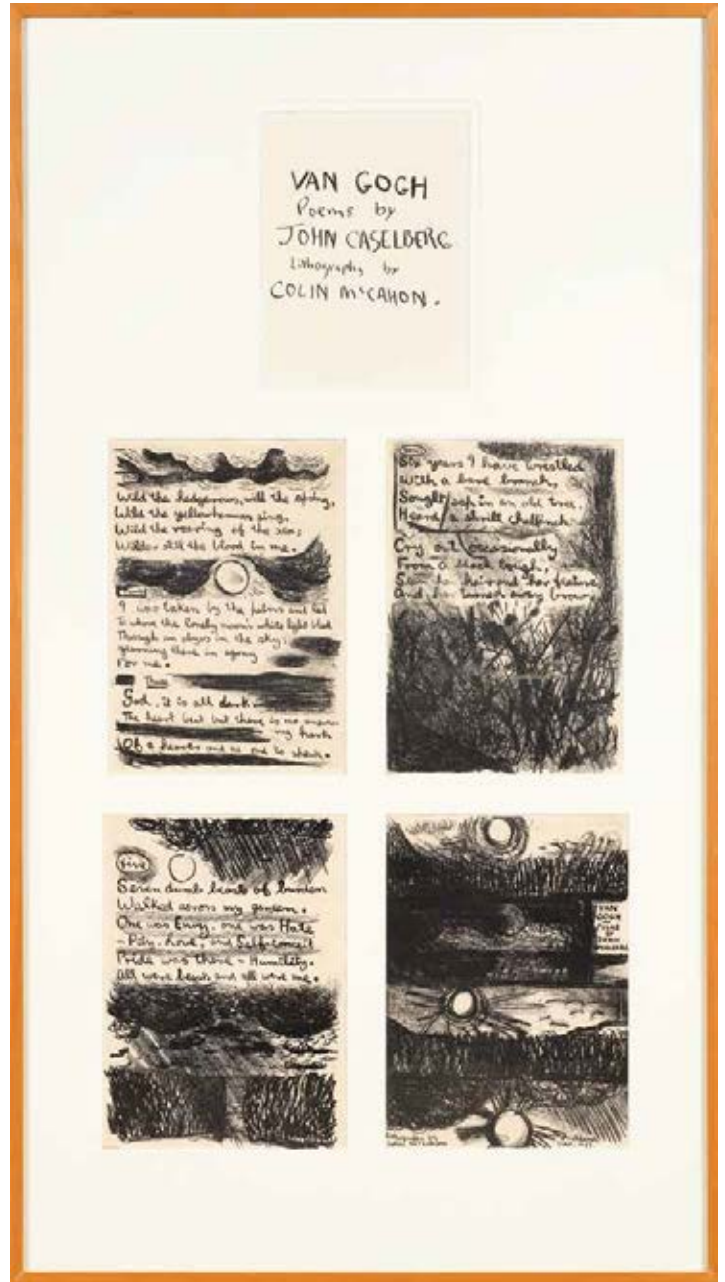 VAN GOGH
Poems by
JOHN CASELBERG
Lithographs by
COLIN McCAHON.
Wild the hedgerows, wild the spring,
Wild the yellowhammers sing,
Wild the roaring of the sea;
Wilder still the blood in me.
I was taken by the palms and led
To where the lonely moon's white light bled
Through an abyss in the sky:
there in agony
For me.
Three
God, it is all dark.
The heart beat but there is no
my hark
Of a hearts and no one to
Six years I have wrestled
With a bare branch,
Sought sap in an old tree,
Heard a shrill chaffinch
Cry out occasionally
From a black bough,
Seen her
And her turned away brow
five
Seven dumb beasts of burden
Walked across my garden.
One was Envy, one was Hate
- Pity, Love, and Self-conceit
Pride was there - Humility.
All were beasts and all were me.
VAN
GOGH
BY
JOHN